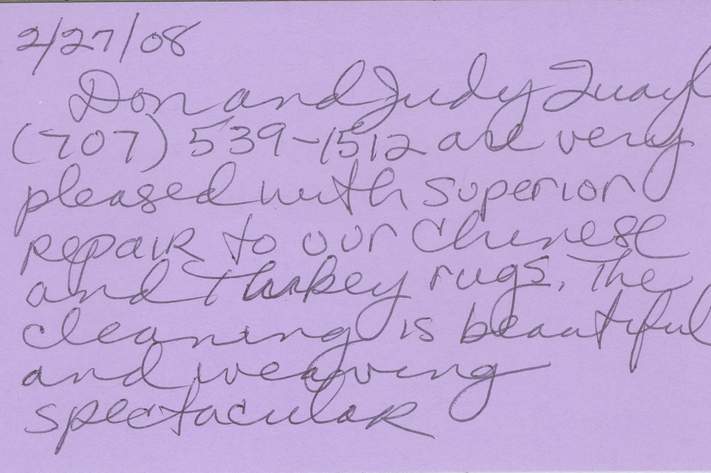 2/27/08
Don and Judy Quayl
(707) 539-1512 are very
pleased with superior
repair to our Chinese
and Turkey rugs. The
cleaning is beautiful
and weaving
spectacular